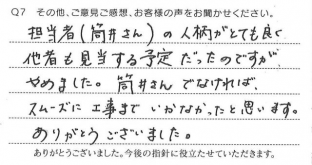 Q7 その他、ご意見ご感想、お客様の声をお聞かせください。
担当者(筒井さん)の人柄がとても良く
他者も見当する予定だったのですが
やめました。筒井さんでなければ、
スムーズに工事までいかなかったと思います。
ありがとうございました。
ありがとうございました。今後の指針に役立たせていただきます。